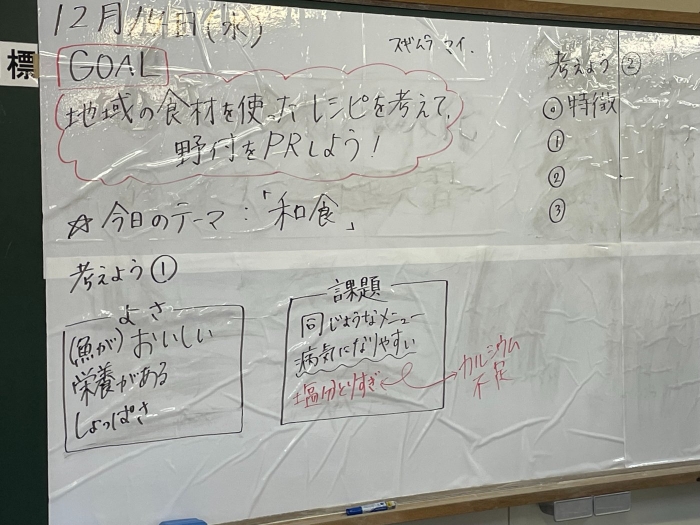 標
12月14日(水)
スギムラ マイ.
GOAL
地域の食材を使ったレシピを考えて、
野付をPRしよう!
☆今日のテーマ:「和食」
考えよう①
よさ
(魚が)おいしい
栄養がある
しょっぱさ
課題
同じようなメニュー
病気になりやすい
塩分とりすぎ
カルシウム
不足
考えよう②
◎特徴
①
②
③